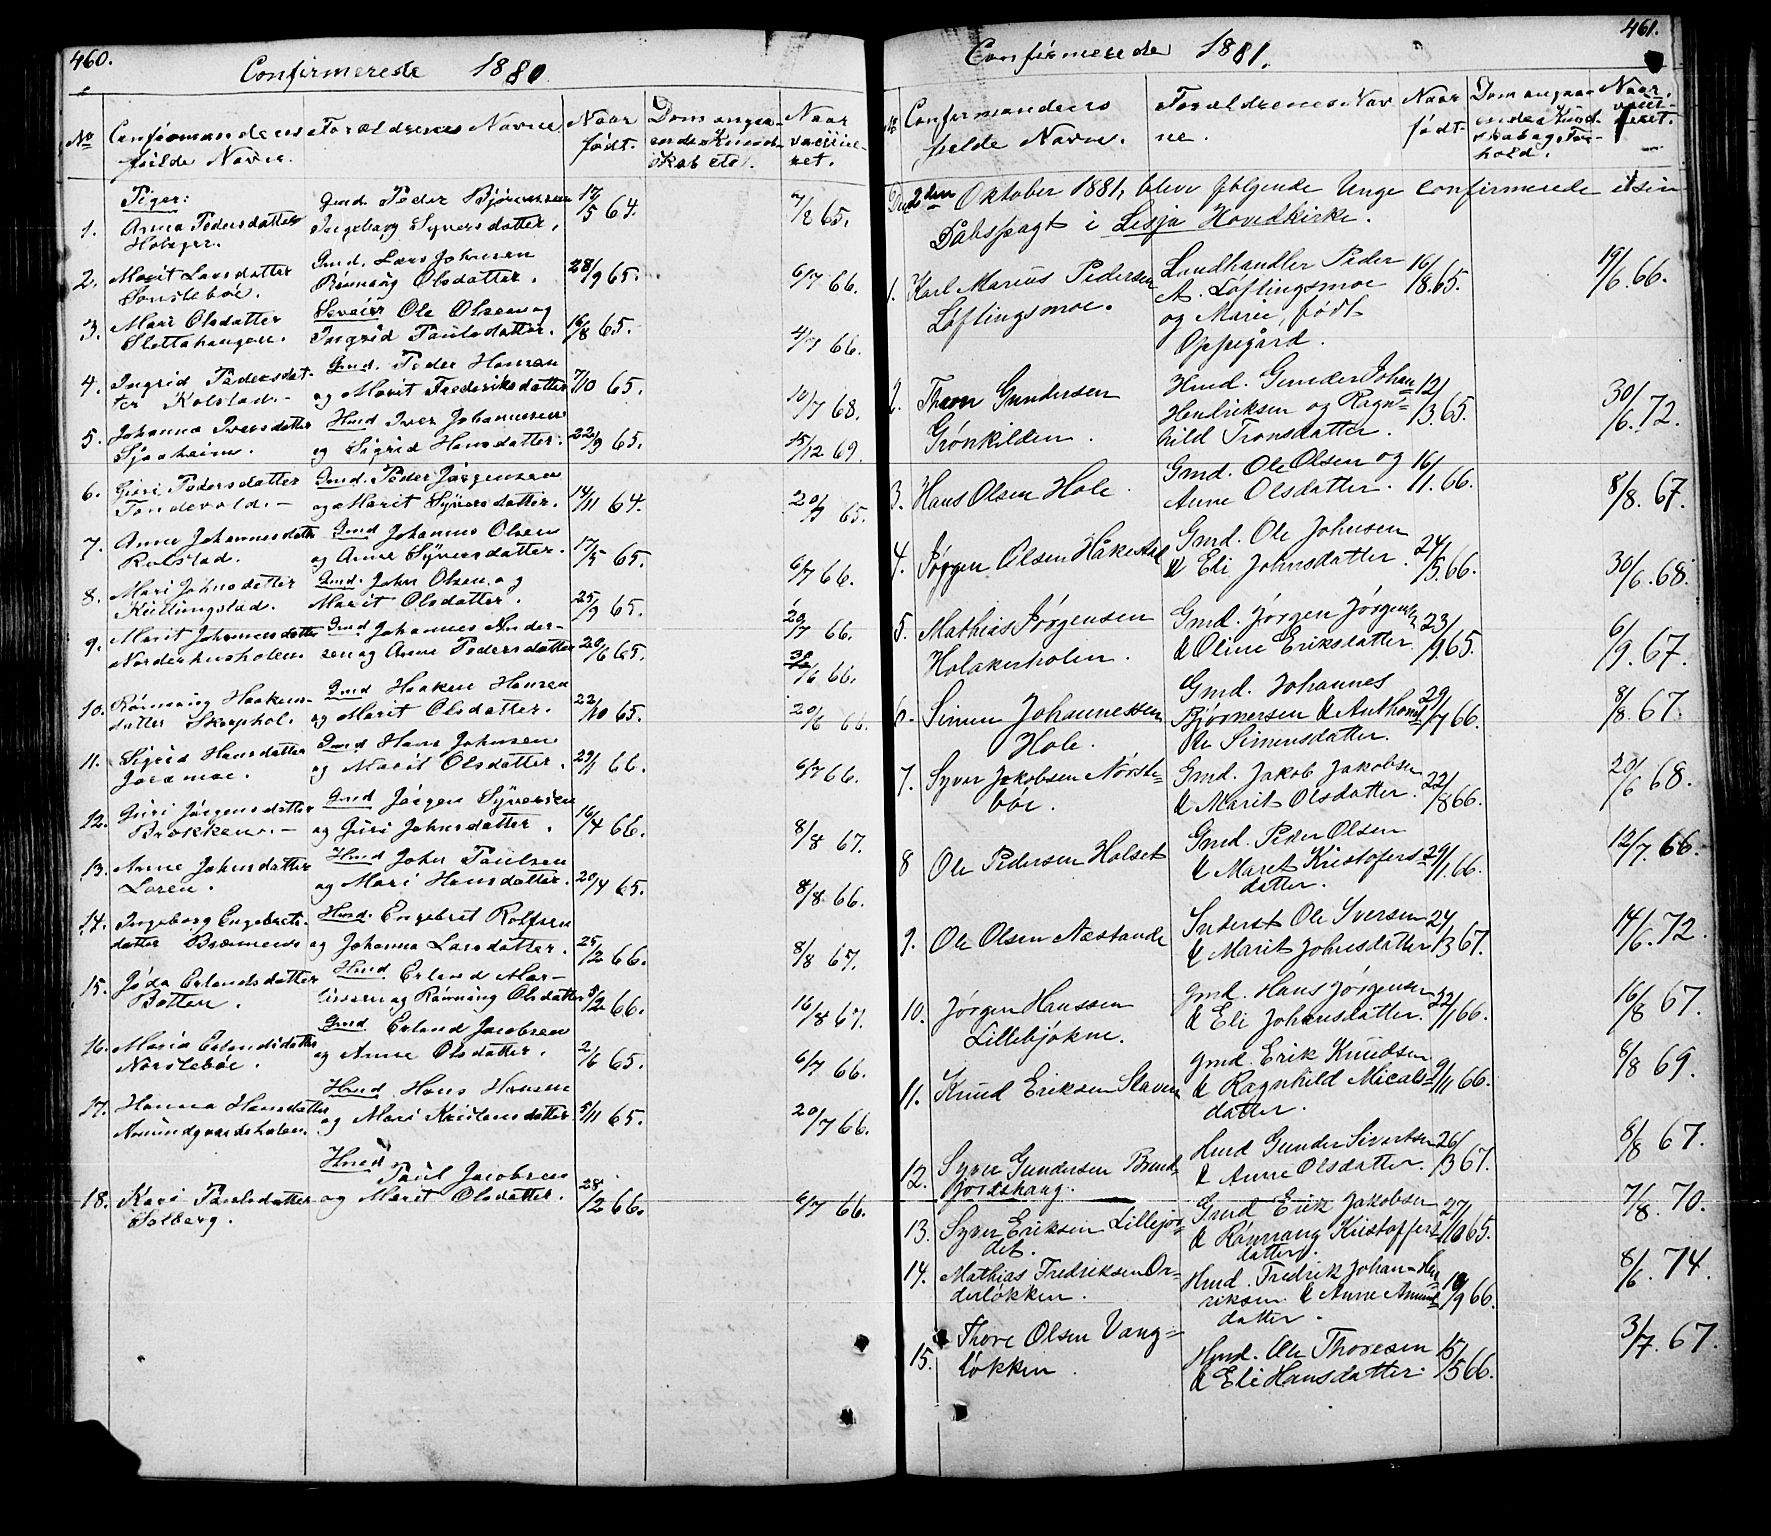 460.
Confirmerede 1880
No
Confirmandens
fulde Navn.
Forældrenes Navne
Naar
født.
Dom angaa-
ende Kund-
skab etc.
Naar
vaccine-
ret.
Piger:
1. Anna Pedersdatter Gmd. Peder Bjørnsen 17/5 64. 7/8 65.
Holager. Ingeborg Syversdatter.
2. Marit Larsdatter Gmd. Lars Johnsen 28/9 65. 6/7 66.
Rønnaug Olsdatter.
3. Mari Olsdatter Ole Olsen og 16/8 65. 4/7 66.
Slettahaugen. Ingrid Paulsdatter.
4. Ingrid Pedersdat- Gmd. Peder Hansen 7/10 65. 10/7 68.
ter Kolstad. og Marit Frederiksdatter
5. Johanna Iversdatter Hmd Iver Johannesen 22/9 65. 15/12 69.
Sjaaheim. og Sigrid Hansdatter.
6. Guri Pedersdatter Gmd. Peder Jørgensen 14/11 64. 20/7 65.
Tondevold. og Marit Syversdatter.
7. Anne Johannesdatter Gmd Johannes Olsen 17/5 65. 6/7 66.
Rolstad. og Anne Syversdatter.
8. Mari Johnsdatter Gmd. John Olsen og 25/9 65. 20/7 66.
Killingstad. Marit Olsdatter.
9. Marit Johannesdatter Gmd Johannes Ander- 20/6 65. 30/6 66.
Nordenhusholen. sen og Anne Pedersdatter
10. Rønnaug Haakens- Gmd Haaken Hansen 22/10 65. 20/6 66.
datter Skarphol. og Marit Olsdatter.
11. Sigrid Hansdatter Gmd Hans Johnsen 29/1 66. 6/7 66.
Joramoe. og Marit Olsdatter.
12. Guri Jørgensdatter Gmd Jørgen Syversen 16/4 66. 8/8 67.
Brøkken. og Guri Johnsdatter.
13. Anne Johnsdatter Hmd John Paulsen 20/4 65. 8/8 66.
Loren. og Mari Hansdatter.
14. Ingeborg Engebrets- Hmd. Engebret Rolfsen 25/2 66. 8/8 67.
datter Brænmen og Johanna Larsdatter.
15. Jøda Erlandsdatter Hmd Erland Mar- 5/2 66. 16/8 67.
Botten. og Rønnaug Olsdatter
16. Maria Erlandsdatter Gmd Erland Jacobsen 2/6 65. 6/7 66.
Nørstebøe. og Anne Olsdatter.
17. Hanna Hansdatter Hmd. Hans Hansen 5/11 65. 20/7 66.
Nomundgaardsholen. og Mari Kristensdatter
18. Kari Paulsdatter Hmd. Paul Jacobsen 28/2 66. 6/7 66.
Solberg. og Marit Olsdatter.
461.
Confirmerede 1881.
No
Confirmandens
fulde Navn.
Forældrenes Nav
ne.
Naar
født.
Dom angaa-
ende Kund-
skab og For-
hold.
Naar
vacci-
neret.
Den 2den Oktober 1881, bleve følgende Unge confirmerede i sin
Dåbspagt i Lesja Hovedkirke.
1. Karl Marius Pedersen Landhandler Peder 16/8. 65. 19/6. 66.
Løftingsmoe. A. Løftingsmoe
og Marie, født
Oppegård.
2. Thom Gundersen Hmd. Gunder Johan 12/3. 65. 30/6. 72.
Grønkilden. Henriksen og Ragn-
hild Tronsdatter.
3. Hans Olsen Hole. Gmd. Ole Olsen og 16/11. 66. 8/8. 67.
Anne Olsdatter.
4. Jørgen Olsen Håkestad Gmd. Ole Johnsen 24/5. 66. 30/6. 68.
& Eli Johnsdatter.
5. Mathias Jørgensen Gmd. Jørgen Jørgensen 23/9. 65. 6/9. 67.
Holakerholen. & Oline Eriksdatter
6. Simen Johannessen Gmd. Johannes 29/7 66. 8/8. 67.
Hole. Bjørnersen & Anthonet
te Simensdatter.
7. Syver Jakobsen Nørste- Gmd. Jakob Jakobsen 22/8 66. 20/6 68.
bøe. & Marit Olsdatter.
8 Ole Pedersen Holset Gmd. Peder Olsen 29/1. 66. 12/7. 66.
& Maret Kristofers-
datter.
9. Ole Olsen Næstande Inderst Ole Iversen 24/3 67. 14/6. 72.
& Marit Johnsdatter
10. Jørgen Hanssen Gmd. Hans Jørgensen 22/1 66. 16/8 67.
Lillebjøkne. & Eli Johansdatter.
11. Knud Eriksen Slaven Gmd. Erik Knudsen 9/11 66. 8/8 69.
& Ragnhild Micals-
datter.
12. Syver Gundersen Brend- Hmd Gunder Sivertsen 26/3 67. 8/8 67.
jordshaug. & Anne Olsdatter.
13. Syver Eriksen Lillejor- Gmd Erik Jakobsen 27/10 65. 7/8. 70.
det. & Rønnaug Kristoffers-
datter.
14. Mathias Fredriksen Or- Hmd. Fredrik Johan Hen 18/9 66. 8/6. 74.
derløkken. riksen & Anne Amund-
datter.
15. Thore Olsen Vang- Hmd. Ole Thoresen 15/5 66. 3/7. 67.
løkken. & Eli Hansdatter.